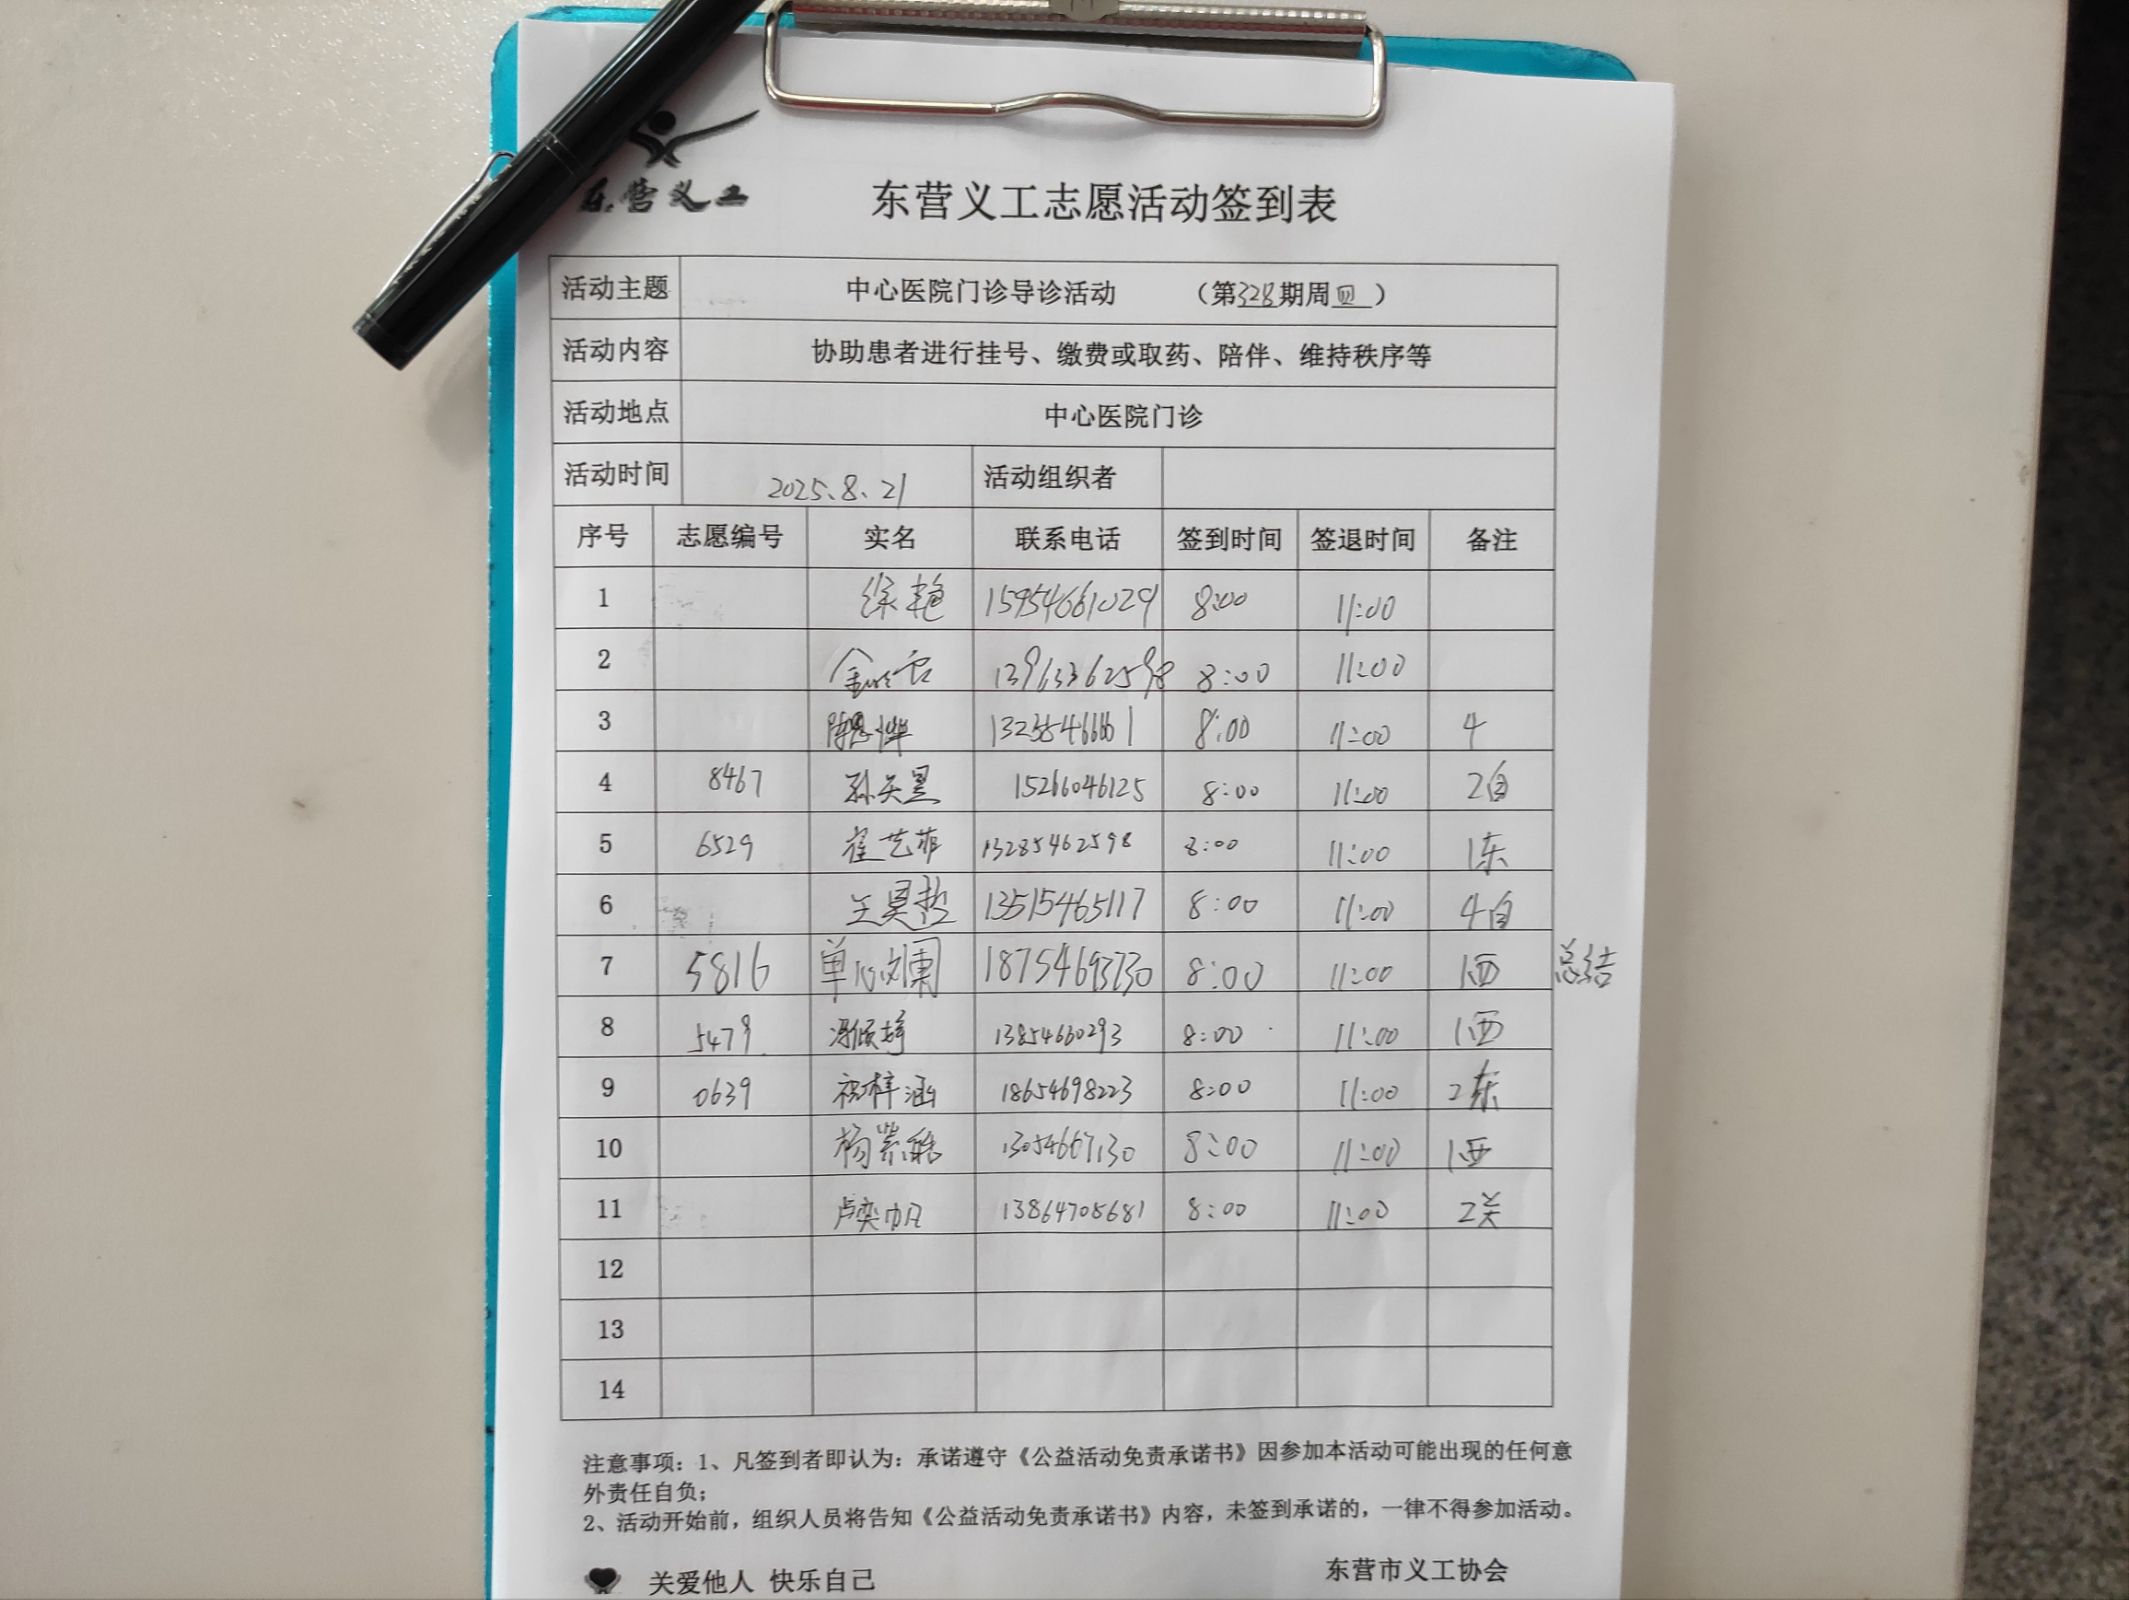 东营义工
东营义工志愿活动签到表
活动主题 中心医院门诊导诊活动 (第328期周四)
活动内容 协助患者进行挂号、缴费或取药、陪伴、维持秩序等
活动地点 中心医院门诊
活动时间 2025.8.21 活动组织者
序号 志愿编号 实名 联系电话 签到时间 签退时间 备注
1 徐艳 15954661029 8:00 11:00
2 13963362598 8:00 11:00
3 8:00 11:00 4
4 8467 孙天昱 15266046125 8:00 11:00 2自
5 6529 崔艺菲 13285462598 8:00 11:00 1东
6 王昊哲 13515465117 8:00 11:00 4自
7 5816 单 18754693730 8:00 11:00 1西 总结
8 5479 13854660293 8:00 11:00 1西
9 0639 祝梓涵 18654698223 8:00 11:00 2东
10 杨紫 8:00 11:00 1西
11 卢奕帆 13864708681 8:00 11:00 2关
12
13
14
注意事项：1、凡签到者即认为：承诺遵守《公益活动免责承诺书》因参加本活动可能出现的任何意
外责任自负；
2、活动开始前，组织人员将告知《公益活动免责承诺书》内容，未签到承诺的，一律不得参加活动。
关爱他人 快乐自己 东营市义工协会